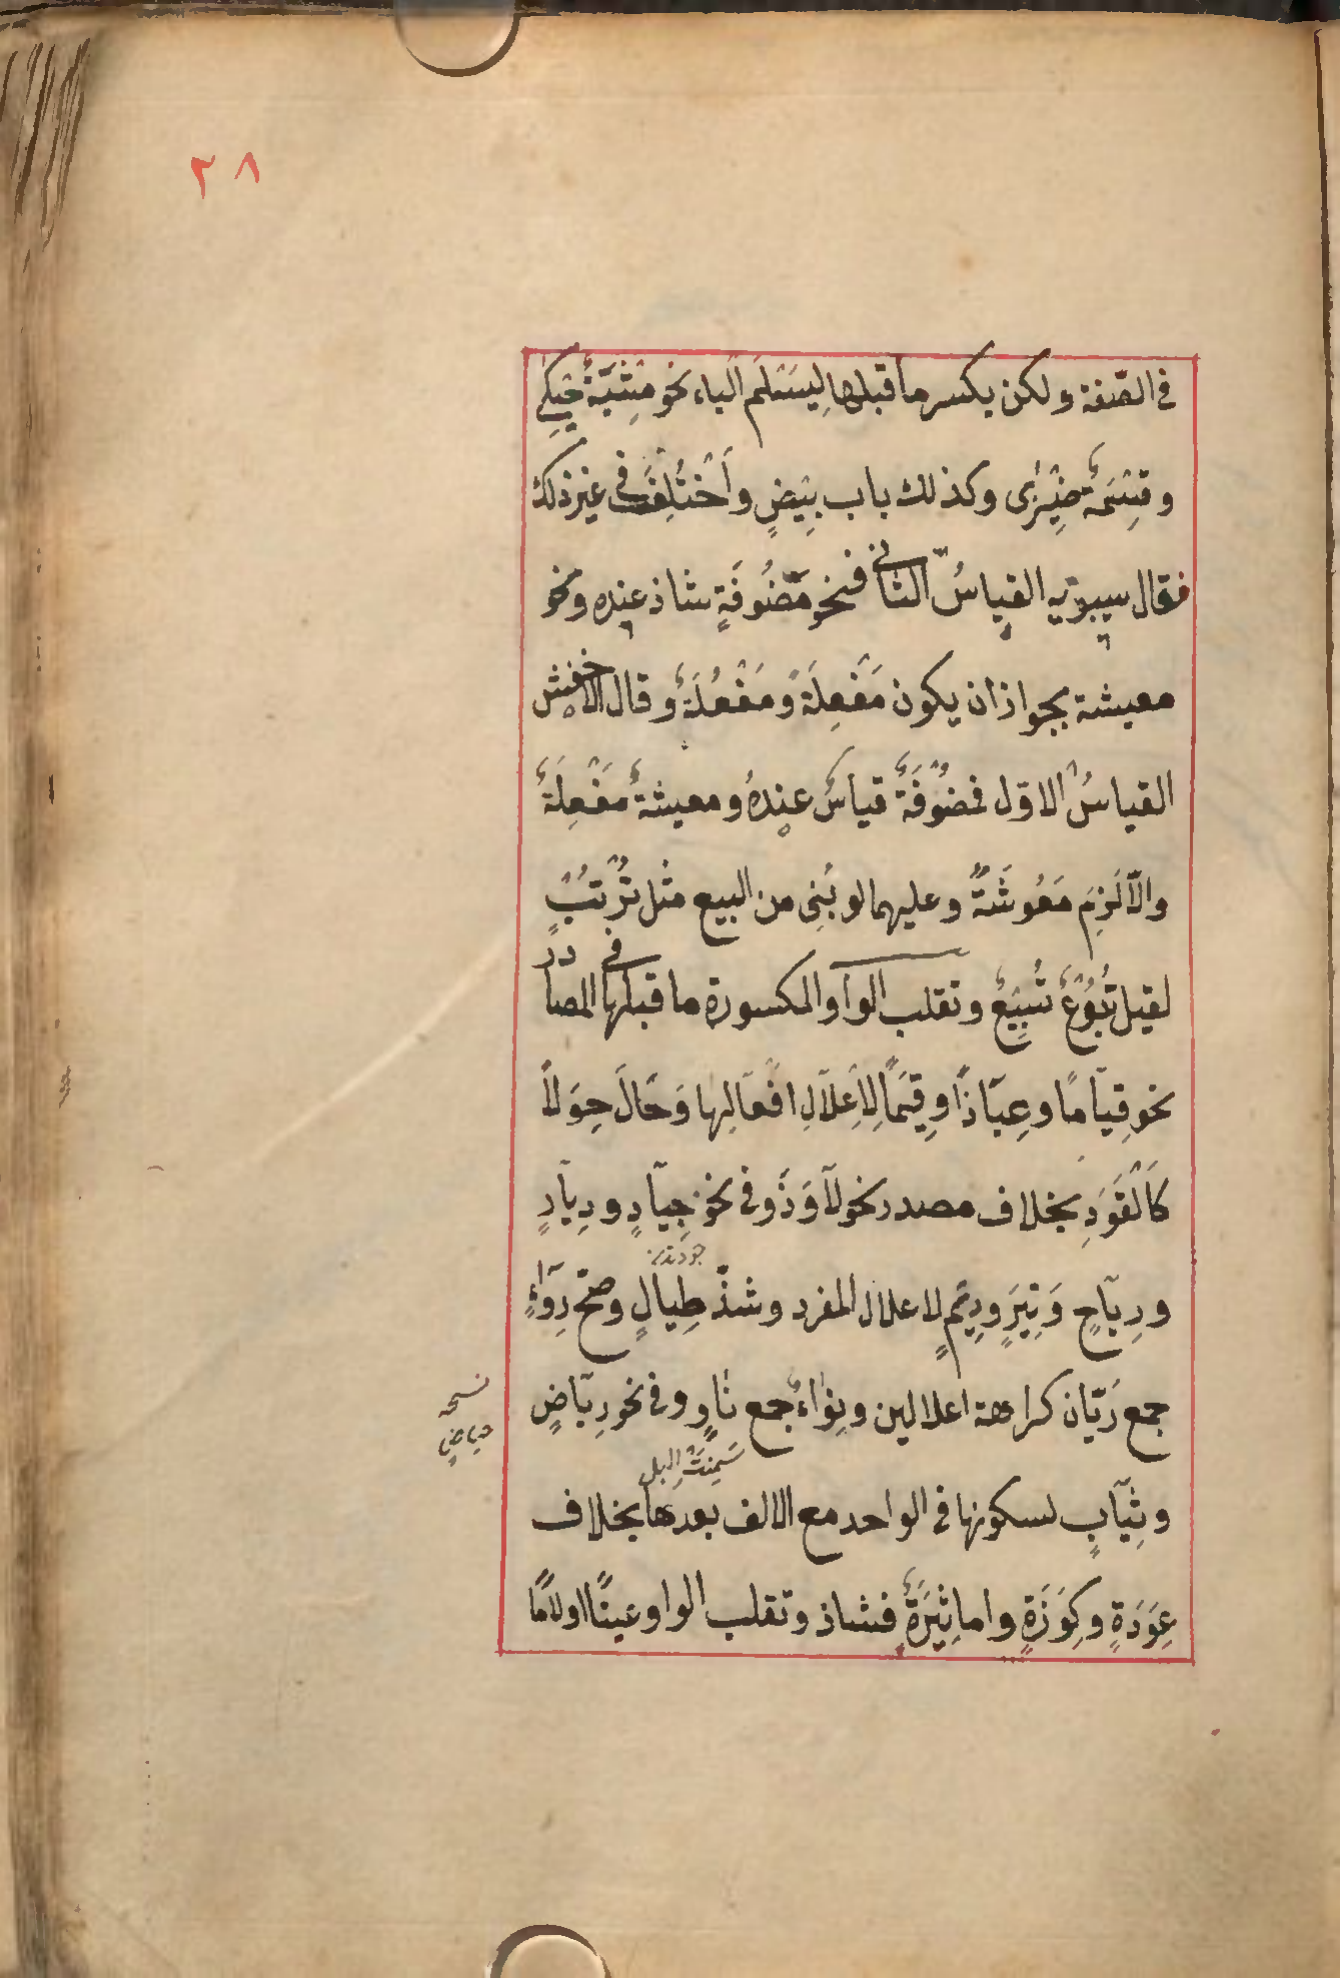 ٢٨
في الصّفة ولكن يكسر ما قبلها لِيَسْلَمَ الياء نحو مِشْيَةٌ حِيْكٰى
وقِسْمَةٌ ضِيْزٰى وكذلك باب بِيْضٍ وأُخْتُلِفَ في غير ذلك
فقال سيبويه القياسُ الثاني فنحو مَضُوفَةٍ شاذ عنده ونحو
معيشة يجوز ان يكون مَفْعِلَةً ومَفْعُلَةً وقال الاخفش
القياسُ الاوّل فمضُوفَةٌ قياسٌ عنده ومعيشةٌ مَفْعِلَةٌ
والّا لَزِمَ مَعُوشَةٌ وعليهما لو بُنِى من البيع مثل تُرْتُبٌ
لقيل تُبُوْعٌ تُبِيْعٌ وتقلب الواو المكسورة ما قبلها في المصادر
نحو قِيَامًا وعِيَاذًا وقِيَمًا لِاِعْلَالِ افْعَالِها وَحَالَ حِوَلًا
كَالْقَوَدِ بخلاف مصدر نحو لَاوَذَ وفي نحو جِيَادٍ ودِيَارٍ
ورِيَاحٍ وَتِيَرٍ ودِيَمٍ لاعلال المفرد وشذّ طِيَالٍ وصحّ رِوَاءٌ
جمع رَيّان كراهة اعلالين ونِوَاءٌ جمع نَاوٍ وفي نحو رِيَاضٍ
نسخه
حياضٍ
سَمِنَتْ الابل
وثِيَابٍ لسكونها في الواحد مع الالف بعدها بخلاف
عِوَدَةٍ وكِوَزَةٍ واما ثِيَرَةٌ فشاذ وتقلب الواو عينًا اولامًا